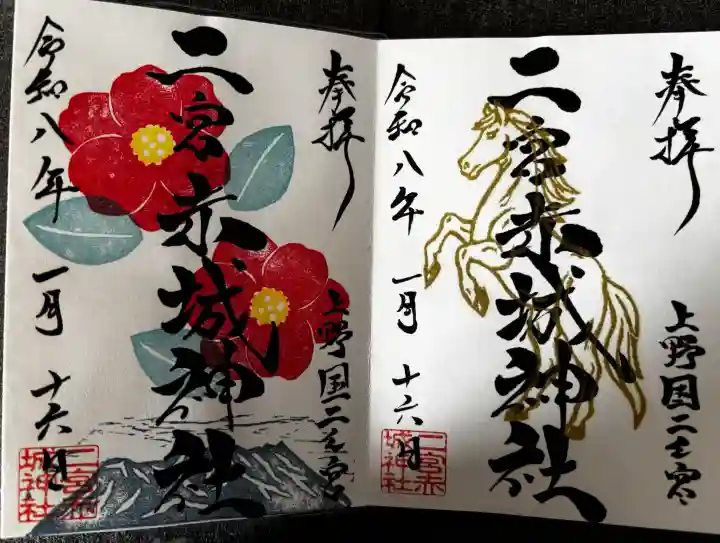 奉拝
上野国二之宮
二宮赤城神社
令和八年 一月 十六日
二宮赤
城神社
奉拝
上野国二之宮
二宮赤城神社
令和八年 一月 十六日
二宮赤
城神社